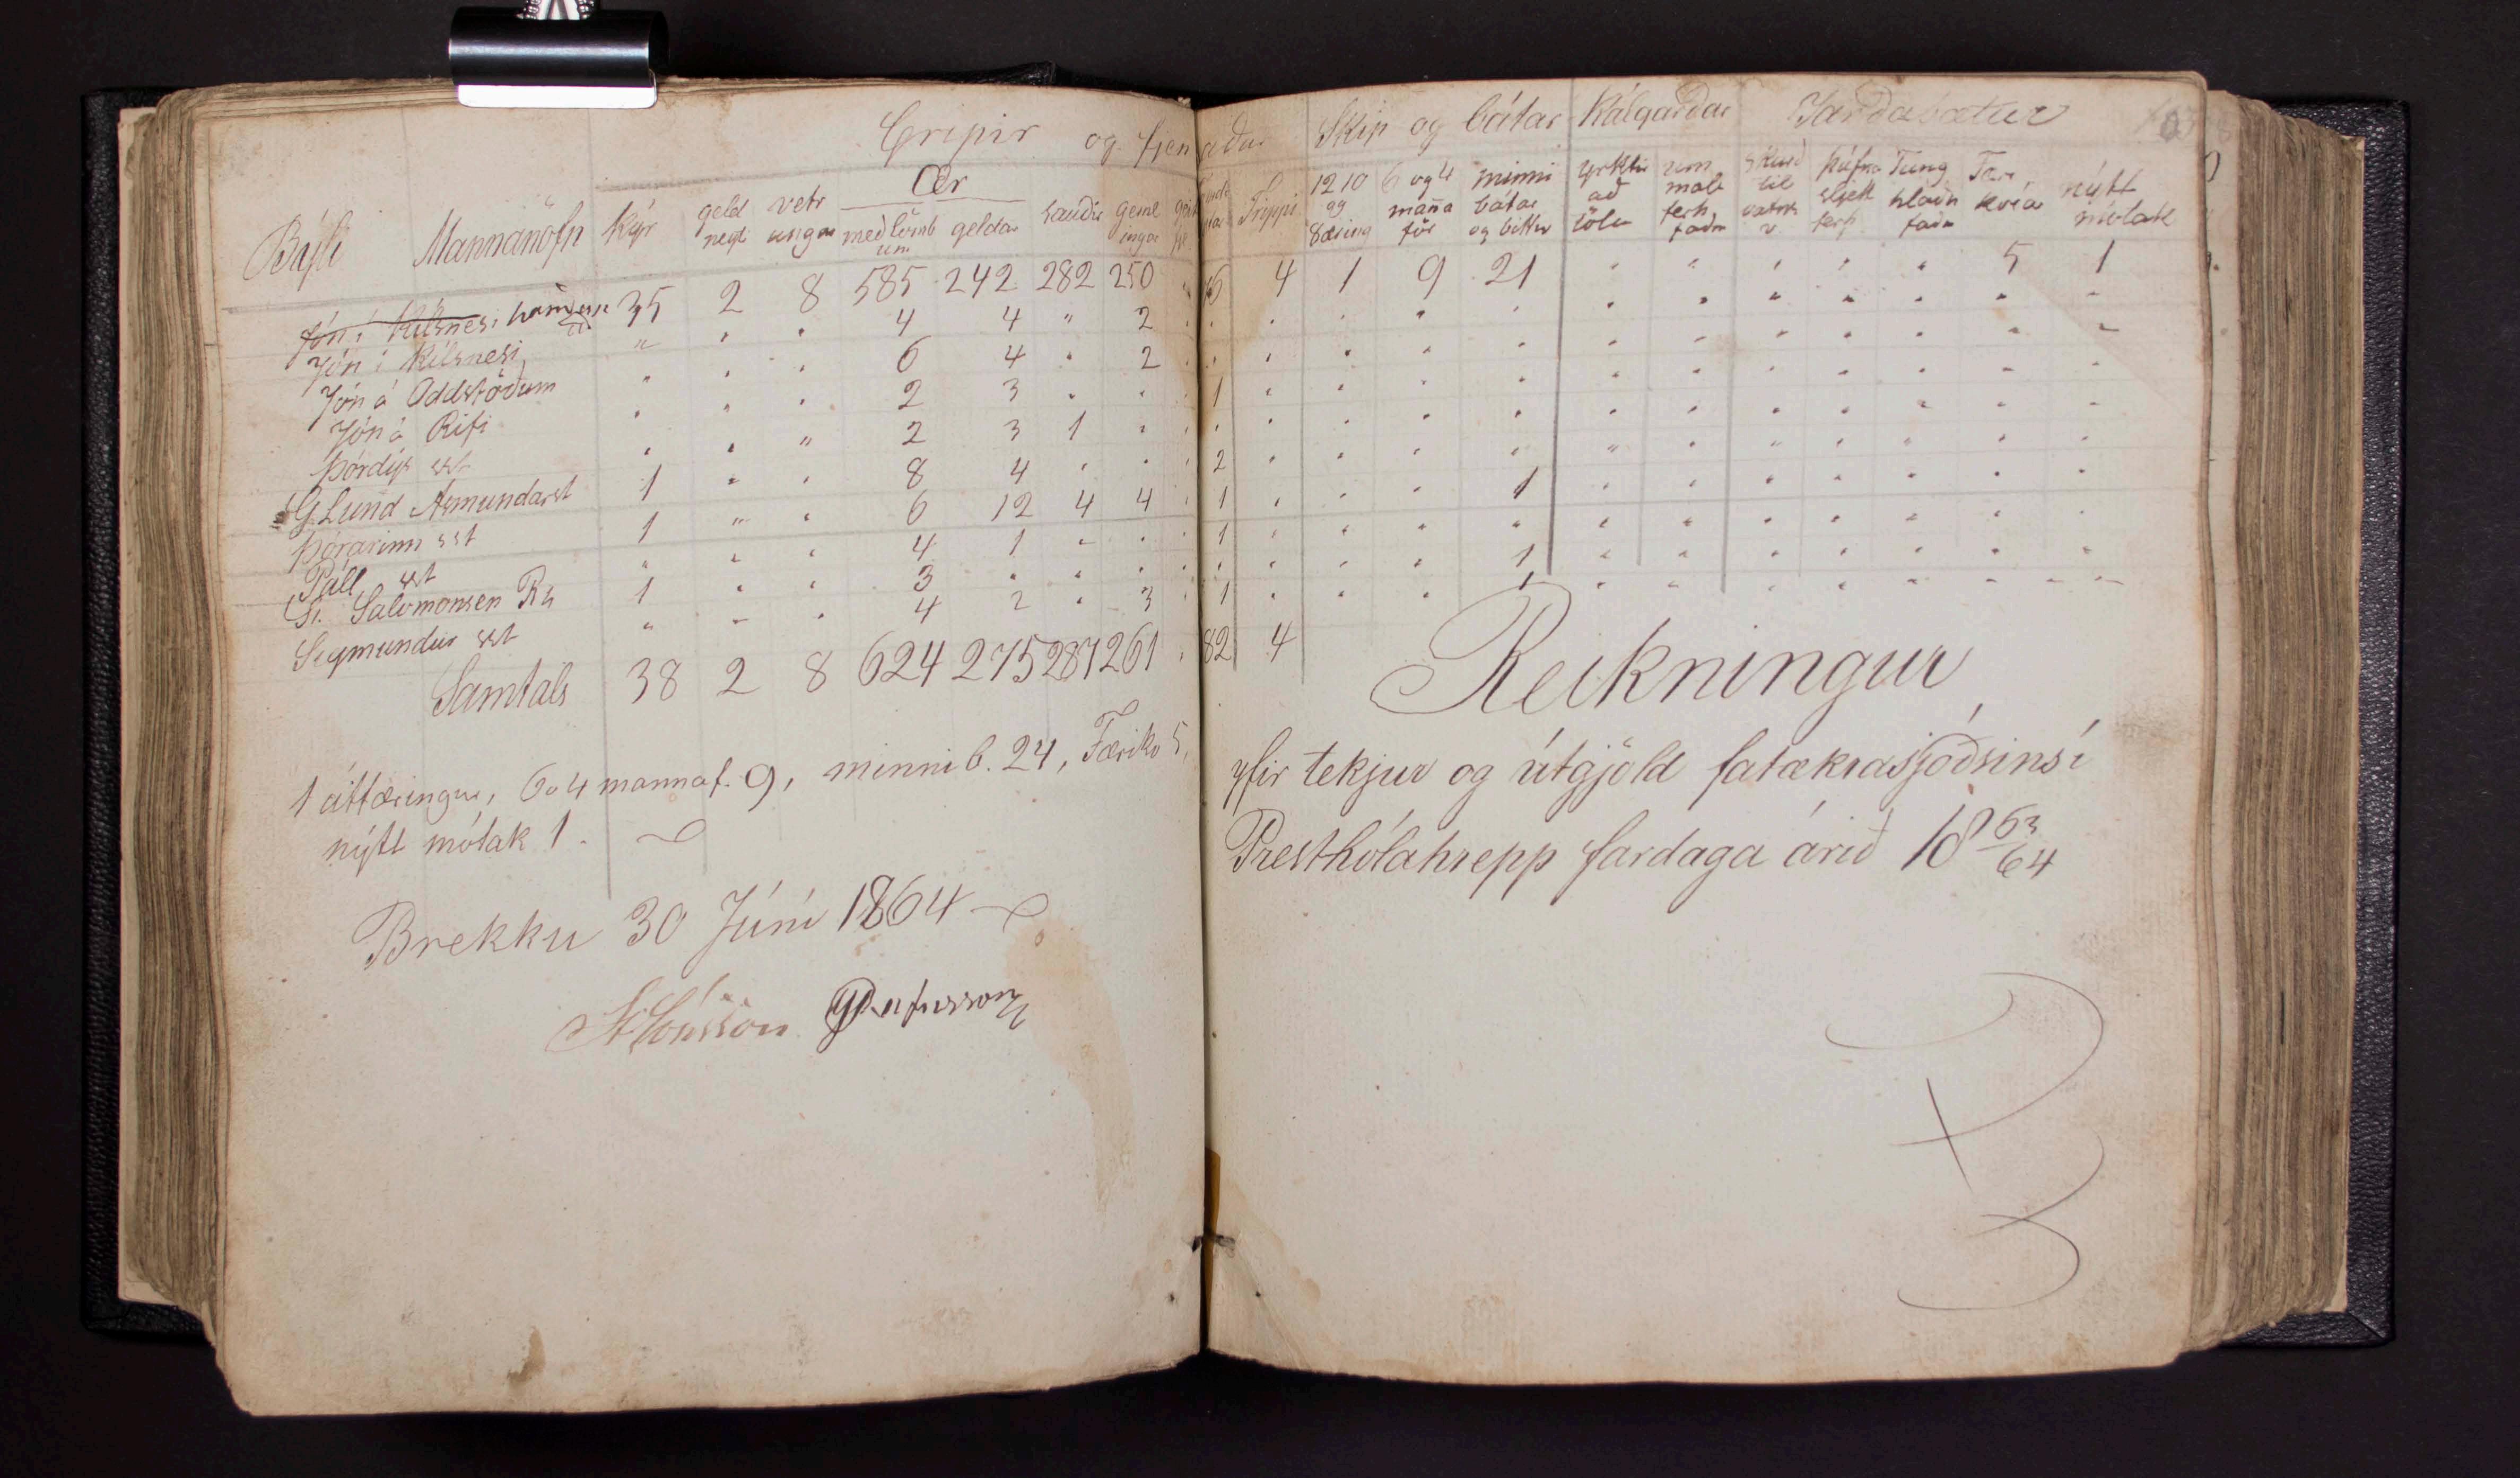 Gripir og fjenaður Skip og bátar Kálgarðar Jarðabætur
Býli Mannanöfn Kýr geld neyti vetr ungar Ær með lömb um geldar sauðir geml ingar Trippi 12 10 og 8æring 6 og 4 manna för minni bátar og bittur yrktir að tölu um mál ferh faðm skurð til vatns v þúfna sljett ferh Tung hlaðn faðm Færi kvíar nýtt mótak
Jón í Kílsnesi 35 2 8 585 242 282 250 " 4 1 9 21 " " " " " 5 1
Jón í Kílsnesi " " " 4 4 " 2
Jón á Oddstöðum " " " 6 4 " 2
Jón á Rifi " " " 2 3 " " " 1
Þórdýs sst " " " 2 3 1 "
G. Lund Asmundarst 1 " " 8 4 " " " 2
Þórarinn sst 1 " " 6 12 4 4 " 1 " " " 1
Páll sst " " " 4 1 " " " 1
Si. Salomonsen Rh 1 " " 3 " " " " " " " " 1
Sigmundur sst " " " 4 2 " 3 " 1 " " " 1
Samtals 38 2 8 624 275 287 261 " 82 4
1 áttæringur, 6 o 4 mannaf. 9, minni b. 24, Færikv 5,
nýtt mótak 1.
Brekku 30 Júní 1864
Reikningur
yfir tekjur og útgjöld fatækrasjóðsins í
Presthólahrepp fardaga árið 18 63/64